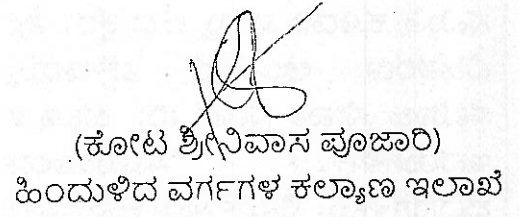 (ಕೋಟ ಶ್ರೀನಿವಾಸ ಪೂಜಾರಿ)
ಹಿಂದುಳಿದ ವರ್ಗಗಳ ಕಲ್ಯಾಣ ಇಲಾಖೆ